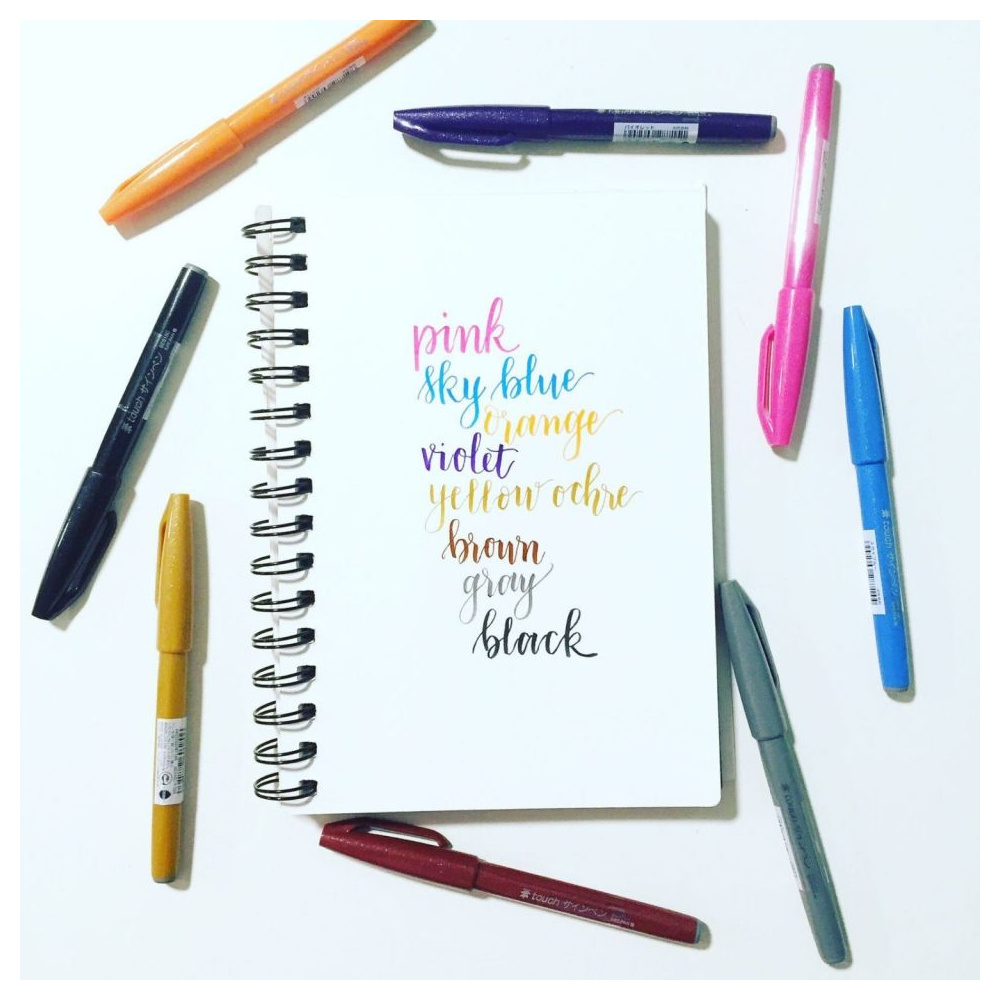 pink
sky blue
orange
violet
yellow ochre
brown
gray
black
touch サインペン
touch サインペン
バイオレット
touch サインペン
touch サインペン